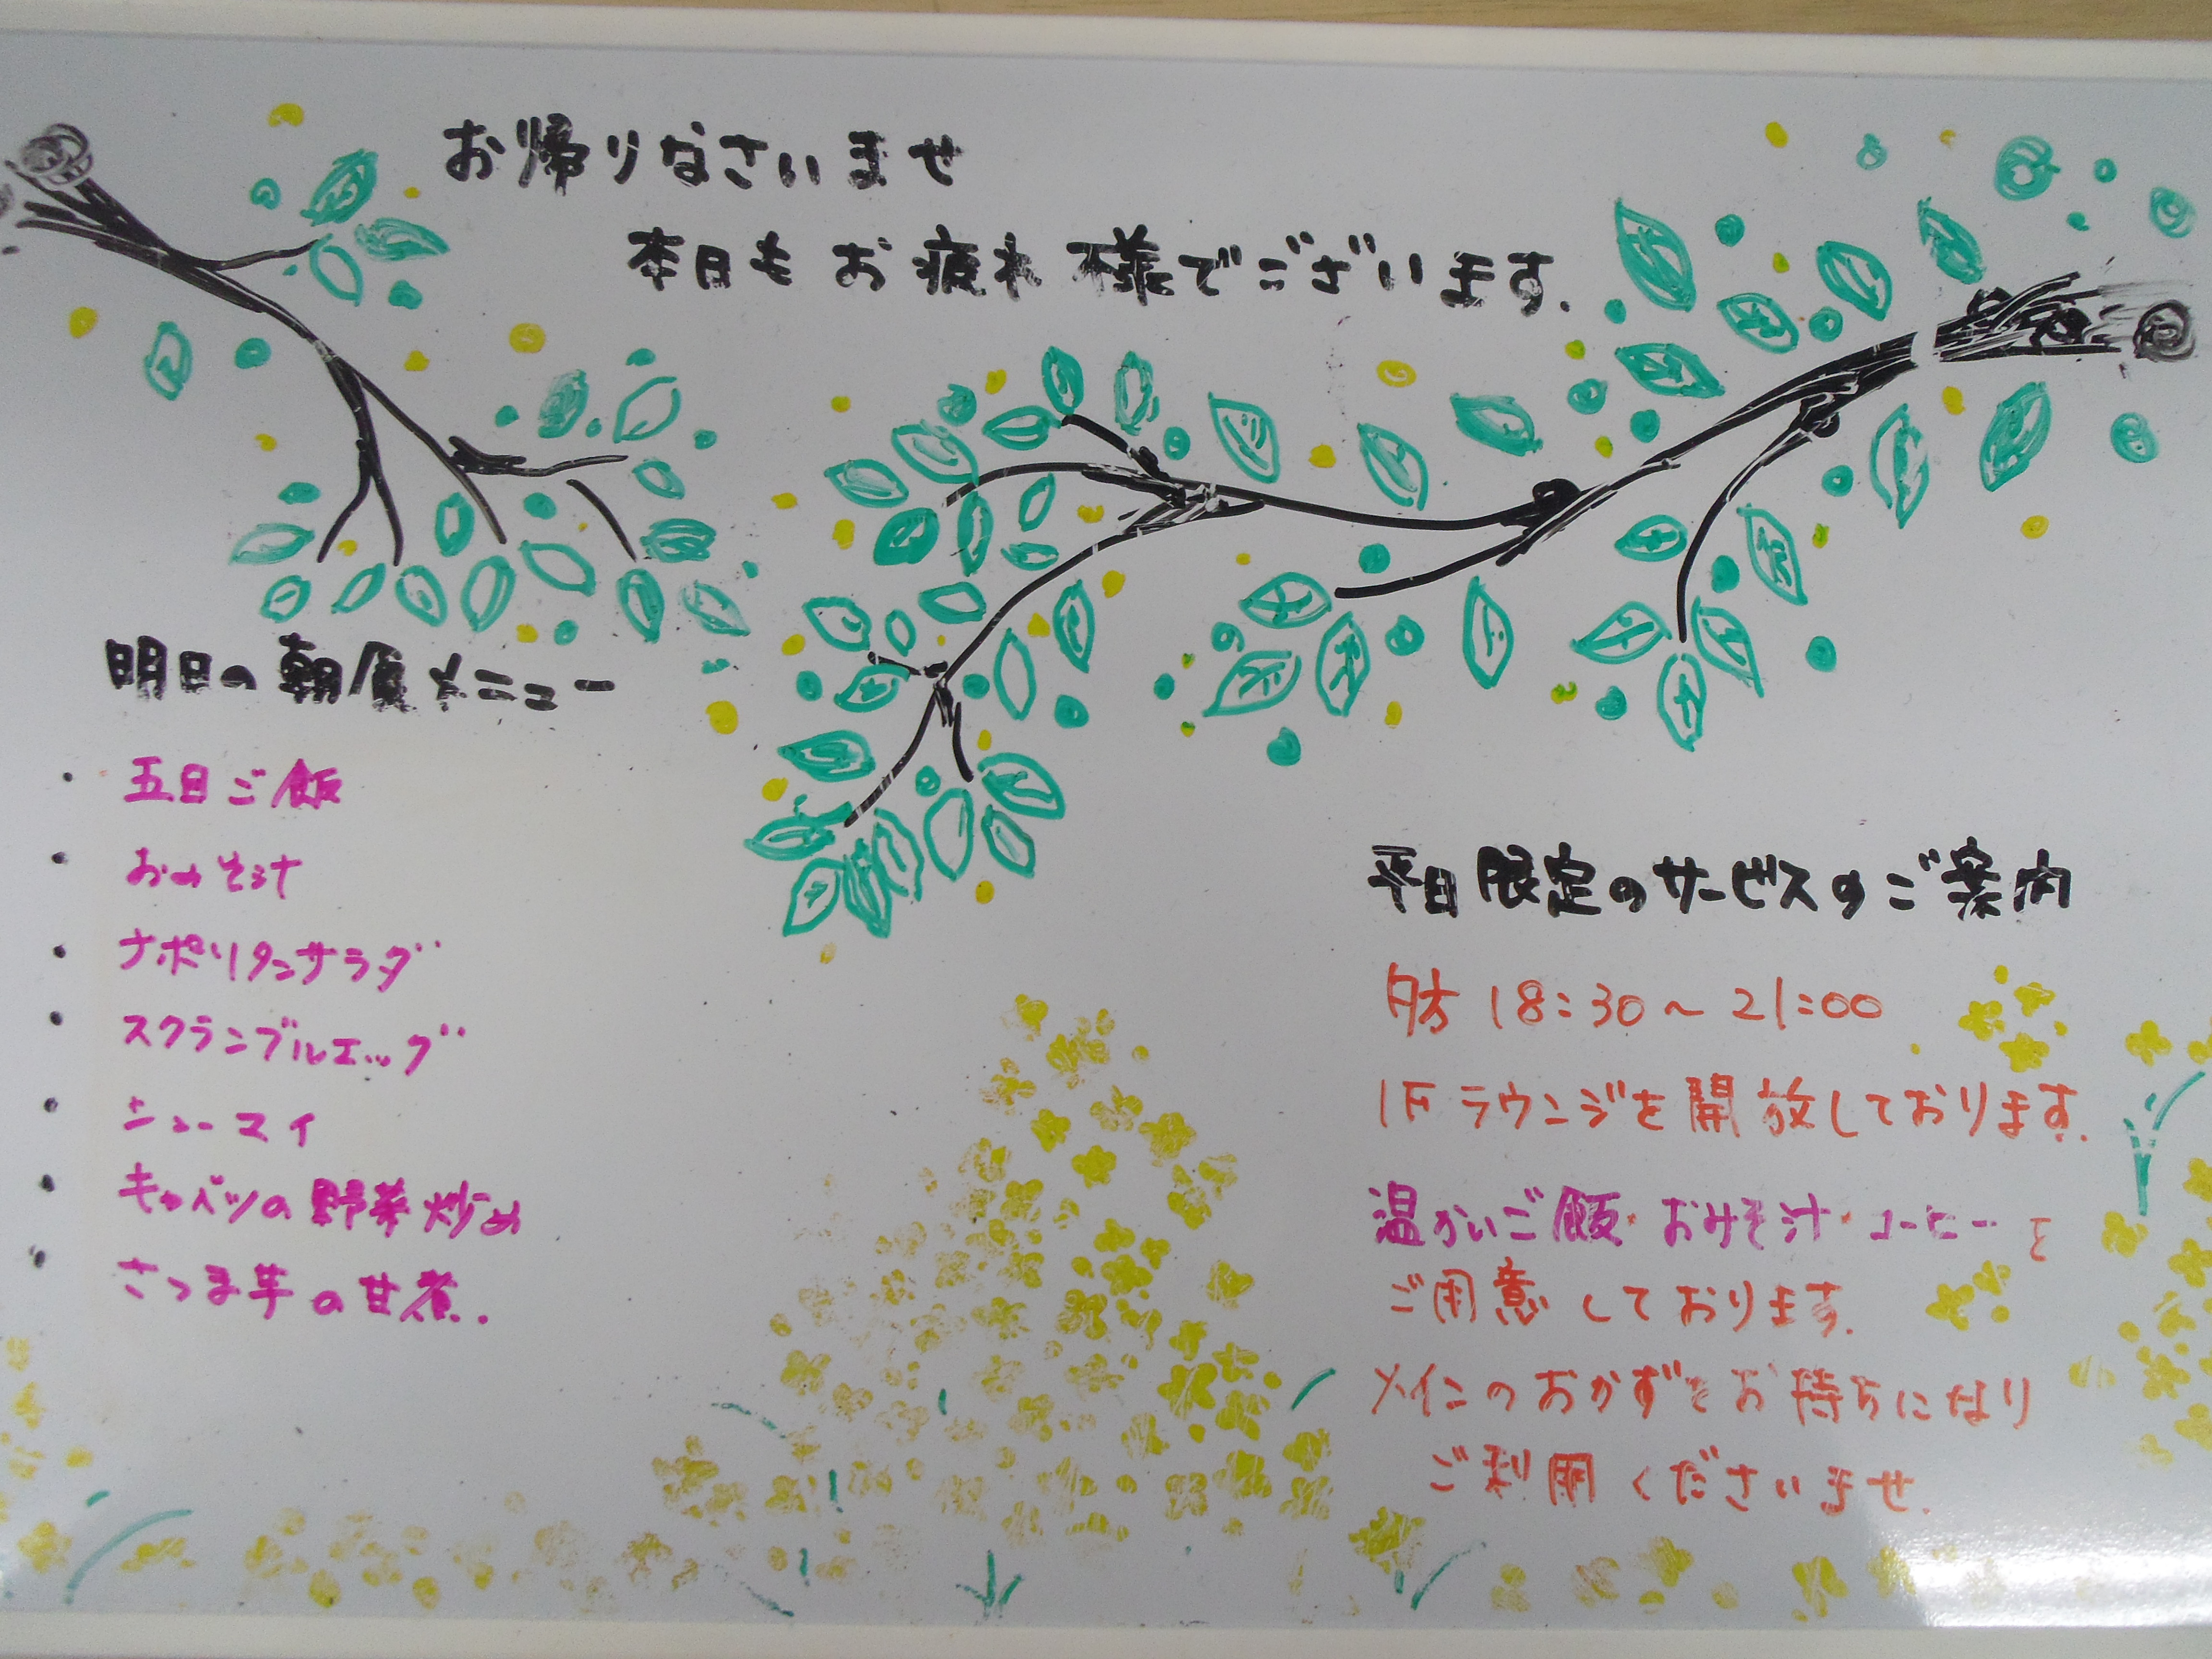 お帰りなさいませ
本日もお疲れ様でございます.
明日の朝食メニュー
・五目ご飯
・おみそ汁
・ナポリタンサラダ
・スクランブルエッグ
・シューマイ
・キャベツの野菜炒め
・さつま芋の甘煮.
平日限定のサービスのご案内
18:30～21:00
1Fラウンジを開放しております.
温かいご飯・おみそ汁・コーヒーを
ご用意しております.
メインのおかずをお持ちになり
ご利用くださいませ.